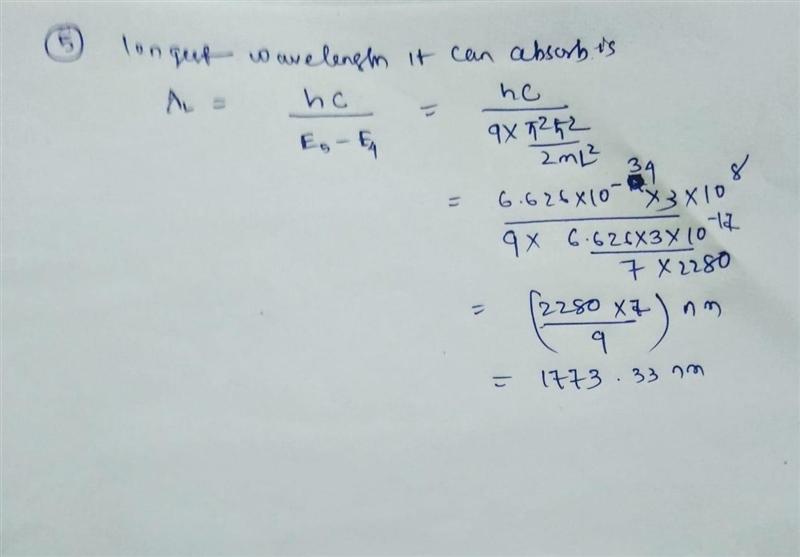 ⑤ longest wavelength it can absorb is
λL = hc / (E5 − E4) = hc / (9 × π²ħ² / 2mL²)
= 6.626×10^-34 × 3×10^8 / (9 × 6.626×3×10^-17 / 7×2280)
= (2280 ×7 / 9) nm
= 1773.33 nm